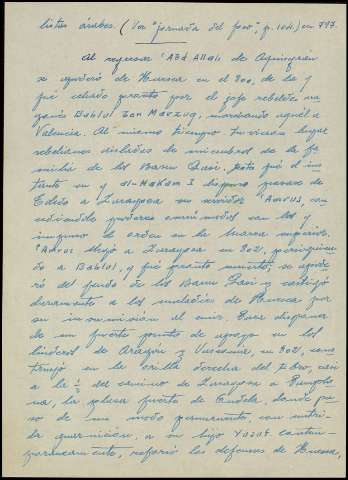 listas árabes. (La "jornada del foso", p. 104.) en 797.
Al regresar 'Abd Allah de Aquisgrán
se apoderó de Huesca en el 800, de la q
fué echado pronto por el jefe rebelde
Bahlul ben Marzuq, marchando aquél a
Valencia. Al mismo tiempo tuvieron lugar
rebeliones aisladas de miembros de la fa-
milia de los Banu Qasi. Esto fué el
en q al-Hakam I dispuso pasase de
Toledo a Zaragoza su servidor 'Amrus, con-
cediéndole poderes omnímodos con los q
impuso el orden en la Marca superior.
'Amrus llegó a Zaragoza en 802, persiguien-
do a Bahlul, q fué pronto muerto; se apode-
ró del feudo de los Banu Qasi y castigó
duramente a los muladíes de Huesca por
su insumisión al emir. Para disponer
de un fuerte punto de apoyo en los
linderos de Aragón y Vasconia, en 802, cons-
truyó en la orilla derecha del Ebro, casi
a la ½ del camino de Zaragoza a Pamplo-
na, la plaza fuerte de Tudela, donde pu-
so de un modo permanente, con nutri-
da guarnición, a su hijo Yusuf. Contem-
poráneamente, reforzó las defensas de Huesca,